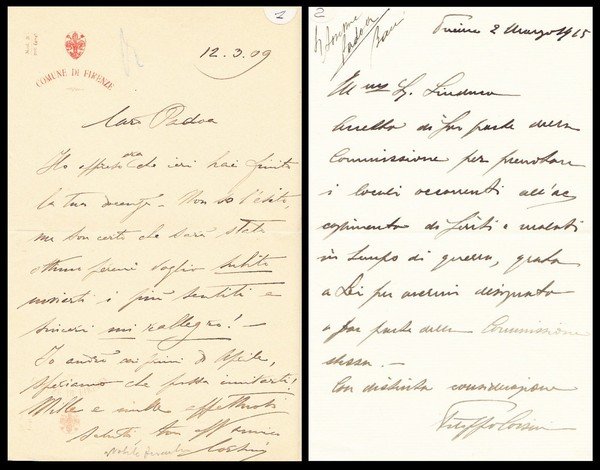 1
COMUNE DI FIRENZE
12.3.09
Caro Padoa
Ho appreso ora che ieri hai finito
la tua docenza. Non so l'esito,
ma son certo che sarà stato
ottimo perciò voglio subito
inviarti i più sentiti e
sinceri mi rallegro! —
Io andrò ai primi d'Aprile,
speriamo che possa imitarti!
Mille e mille affettuosi
saluti tuo aff amico
Corsini
2
Padova
Firenze 2 Marzo 1915
Ill mo Sig. Sindaco
Accetto di far parte della
Commissione per prenotare
i locali occorrenti all'ac
coglimento di feriti e malati
in tempo di guerra, grato
a Lei per avermi designato
a far parte della Commissione
stessa. —
Con distinta considerazione
Filippo Corsini